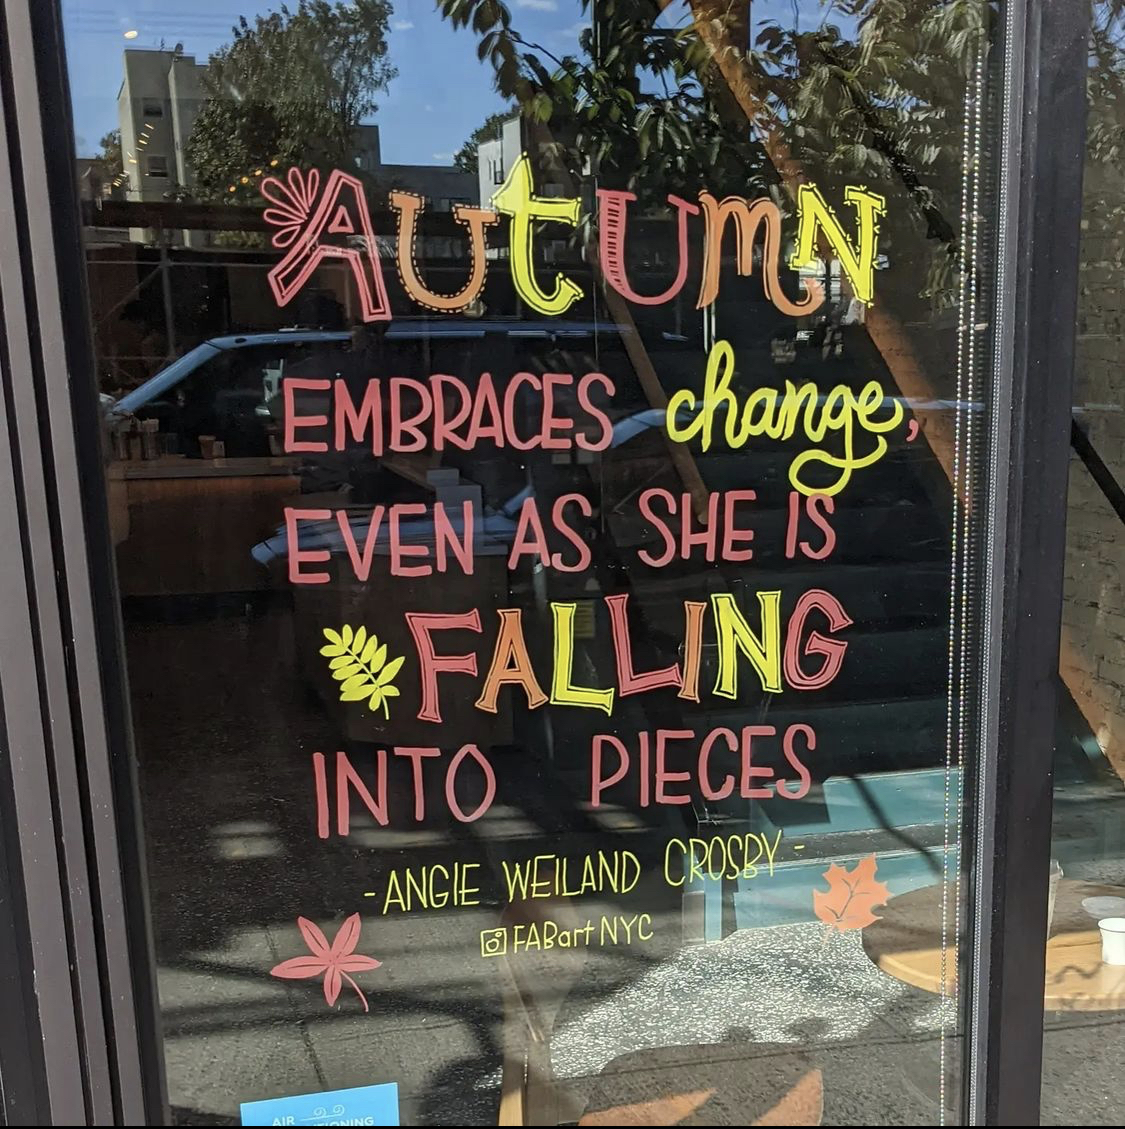 AUtUmN
EMBRACES change,
EVEN AS SHE IS
FALLING
INTO PIECES
-ANGIE WEILAND CROSBY-
FABart NYC
AIR